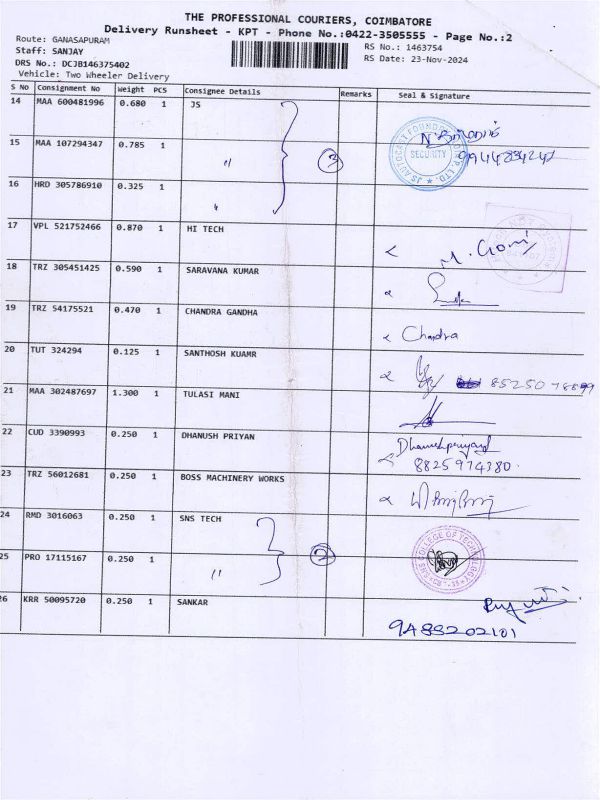 THE PROFESSIONAL COURIERS, COIMBATORE
Delivery Runsheet - KPT - Phone No.:0422-3505555 - Page No.:2
Route: GANASAPURAM
RS No.: 1463754
Staff: SANJAY
RS Date: 23-Nov-2024
DRS No.: DCJB146375402
Vehicle: Two Wheeler Delivery
S No Consignment No Weight PCS Consignee Details Remarks Seal & Signature
14 MAA 600481996 0.680 1 JS
15 MAA 107294347 0.785 1 " 3
SECURITY
16 HRD 305786910 0.325 1 "
17 VPL 521752466 0.870 1 HI TECH
18 TRZ 305451425 0.590 1 SARAVANA KUMAR
19 TRZ 54175521 0.470 1 CHANDRA GANDHA Chandra
20 TUT 324294 0.125 1 SANTHOSH KUAMR
21 MAA 302487697 1.300 1 TULASI MANI
22 CUD 3390993 0.250 1 DHANUSH PRIYAN
8825974380.
23 TRZ 56012681 0.250 1 BOSS MACHINERY WORKS
24 RMD 3016063 0.250 1 SNS TECH
25 PRO 17115167 0.250 1 " 2
COLLEGE OF TECHNOLOGY
26 KRR 50095720 0.250 1 SANKAR
9488202101